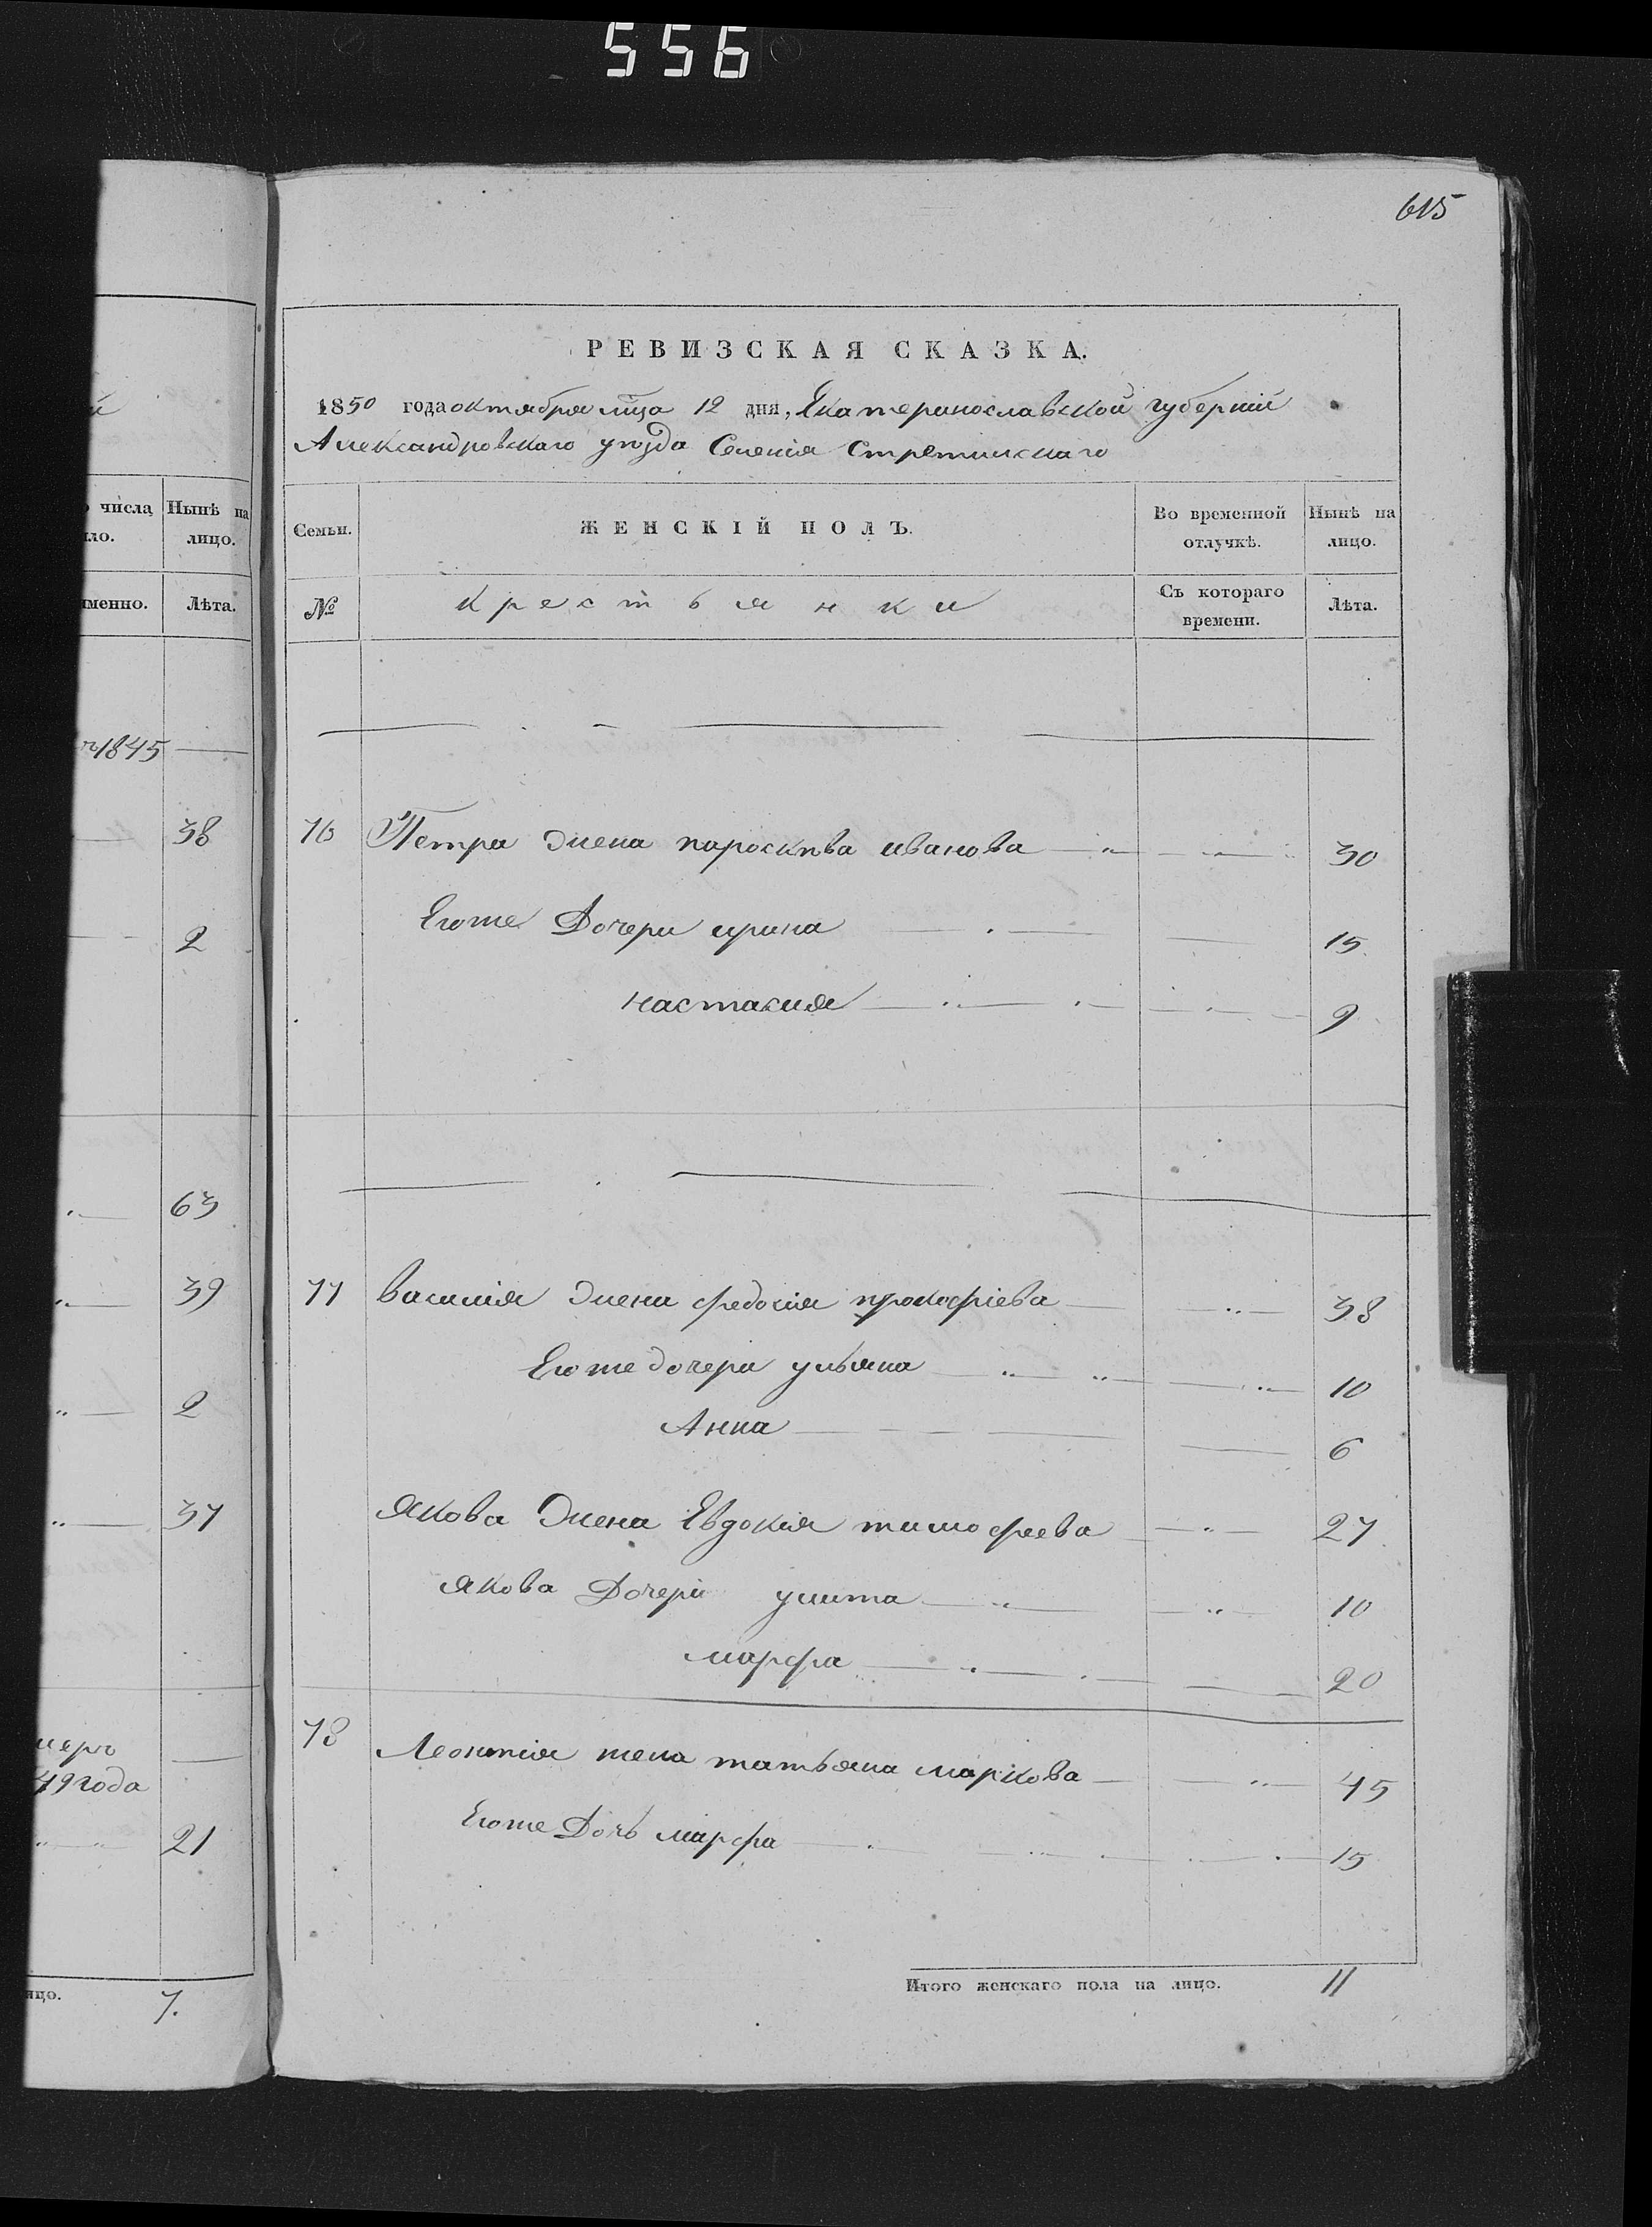 556
615
РЕВИЗСКАЯ СКАЗКА.
1850 года октября мца 12 дня, Екатеринославской губернии
Александровскаго уезда Селения Стретинскаго
числа Нынѣ на лицо.
ло.
менно. Лѣта.
Семьи. ЖЕНСКІЙ ПОЛЪ. Во временной отлучкѣ. Нынѣ на лицо.
№ крестьянки Съ котораго времени. Лѣта.
1845
38
2
76 Петра жена пароскива иванова 30
Егоже Дочери ирина 15
настасия 9
63
39
2
37
77 василия жена федосия прокофіева 38
Егоже дочери ульяна 10
Анна 6
Якова жена Евдокия тимофеева 27
якова Дочери улита 10
марфа 20
меръ
49 года
21
78 Леонтия жена татьяна маркова 45
Егоже Дочь марфа 15
Итого женскаго пола на лицо. 11
ицо. 7.